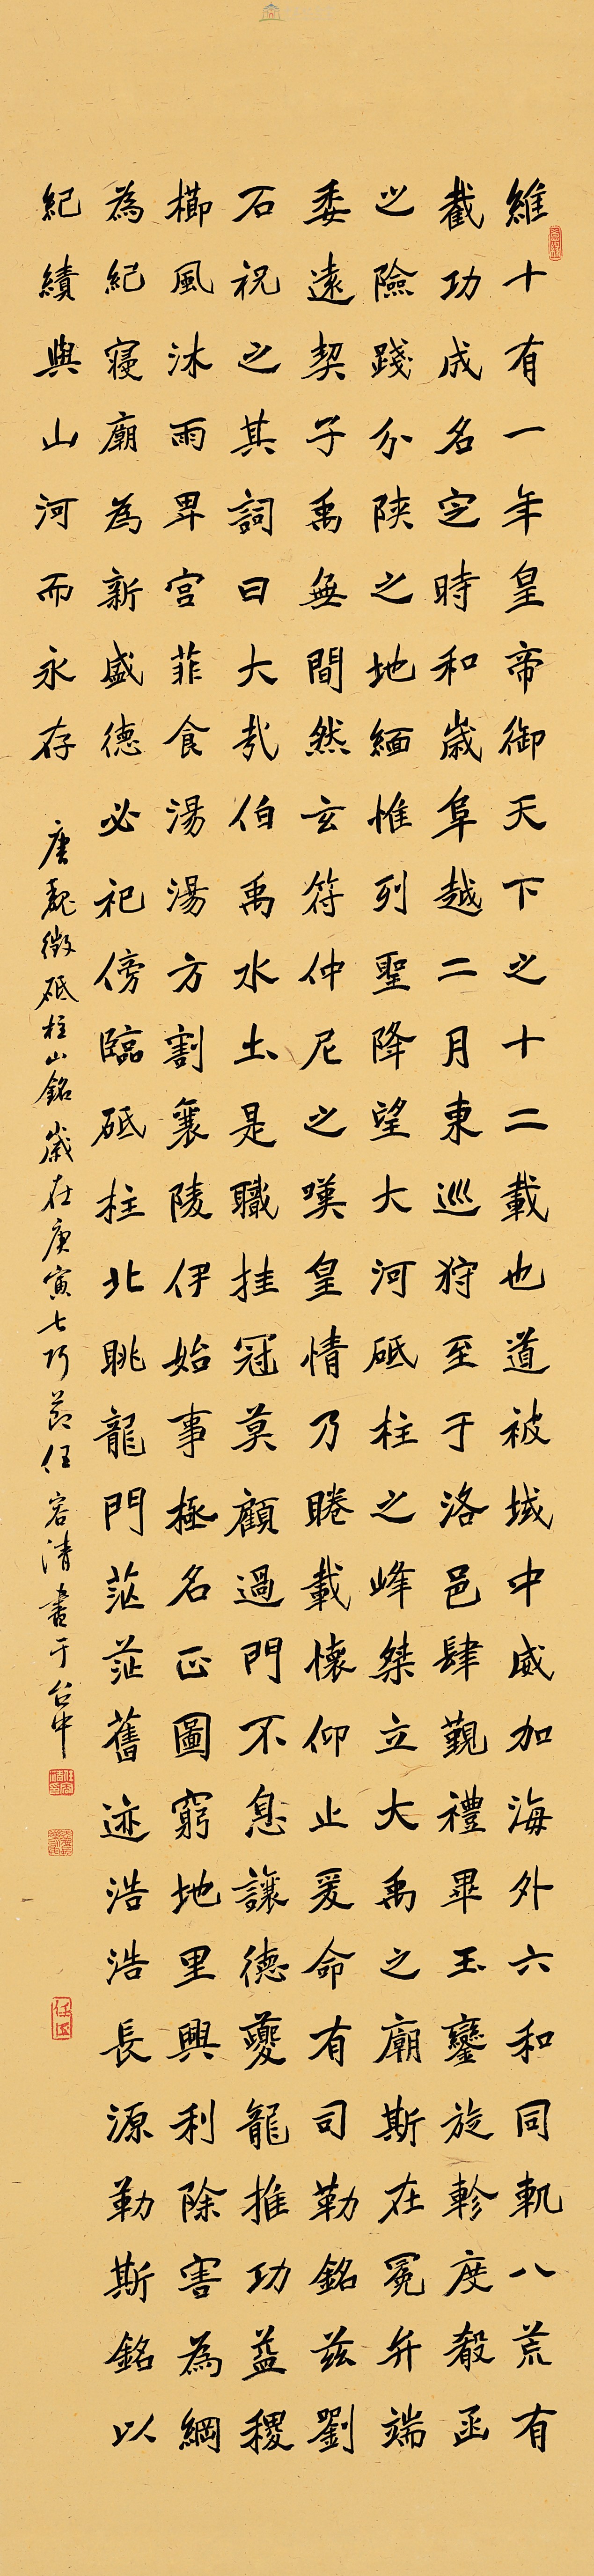 維十有一年皇帝御天下之十二載也道被域中威加海外六和同軌八荒有
截功成名定時和歲阜越二月東巡狩至于洛邑肆覲禮畢玉鑾旋軫度殽函
之險踐分陝之地緬惟列聖降望大河砥柱之峰桀立大禹之廟斯在冕弁端
委遠契子禹無間然玄符仲尼之嘆皇情乃睠載懷仰止爰命有司勒銘茲劉
石祝之其詞曰大哉伯禹水土是職挂冠莫顧過門不息讓德夔龍推功益稷
櫛風沐雨卑宮菲食湯湯方割襄陵伊始事極名正圖窮地里興利除害為綱
為紀寢廟為新盛德必祀傍臨砥柱北眺龍門茫茫舊迹浩浩長源勒斯銘以
紀績與山河而永存
唐魏徵砥柱山銘歲在庚寅七巧節任容清書于台中